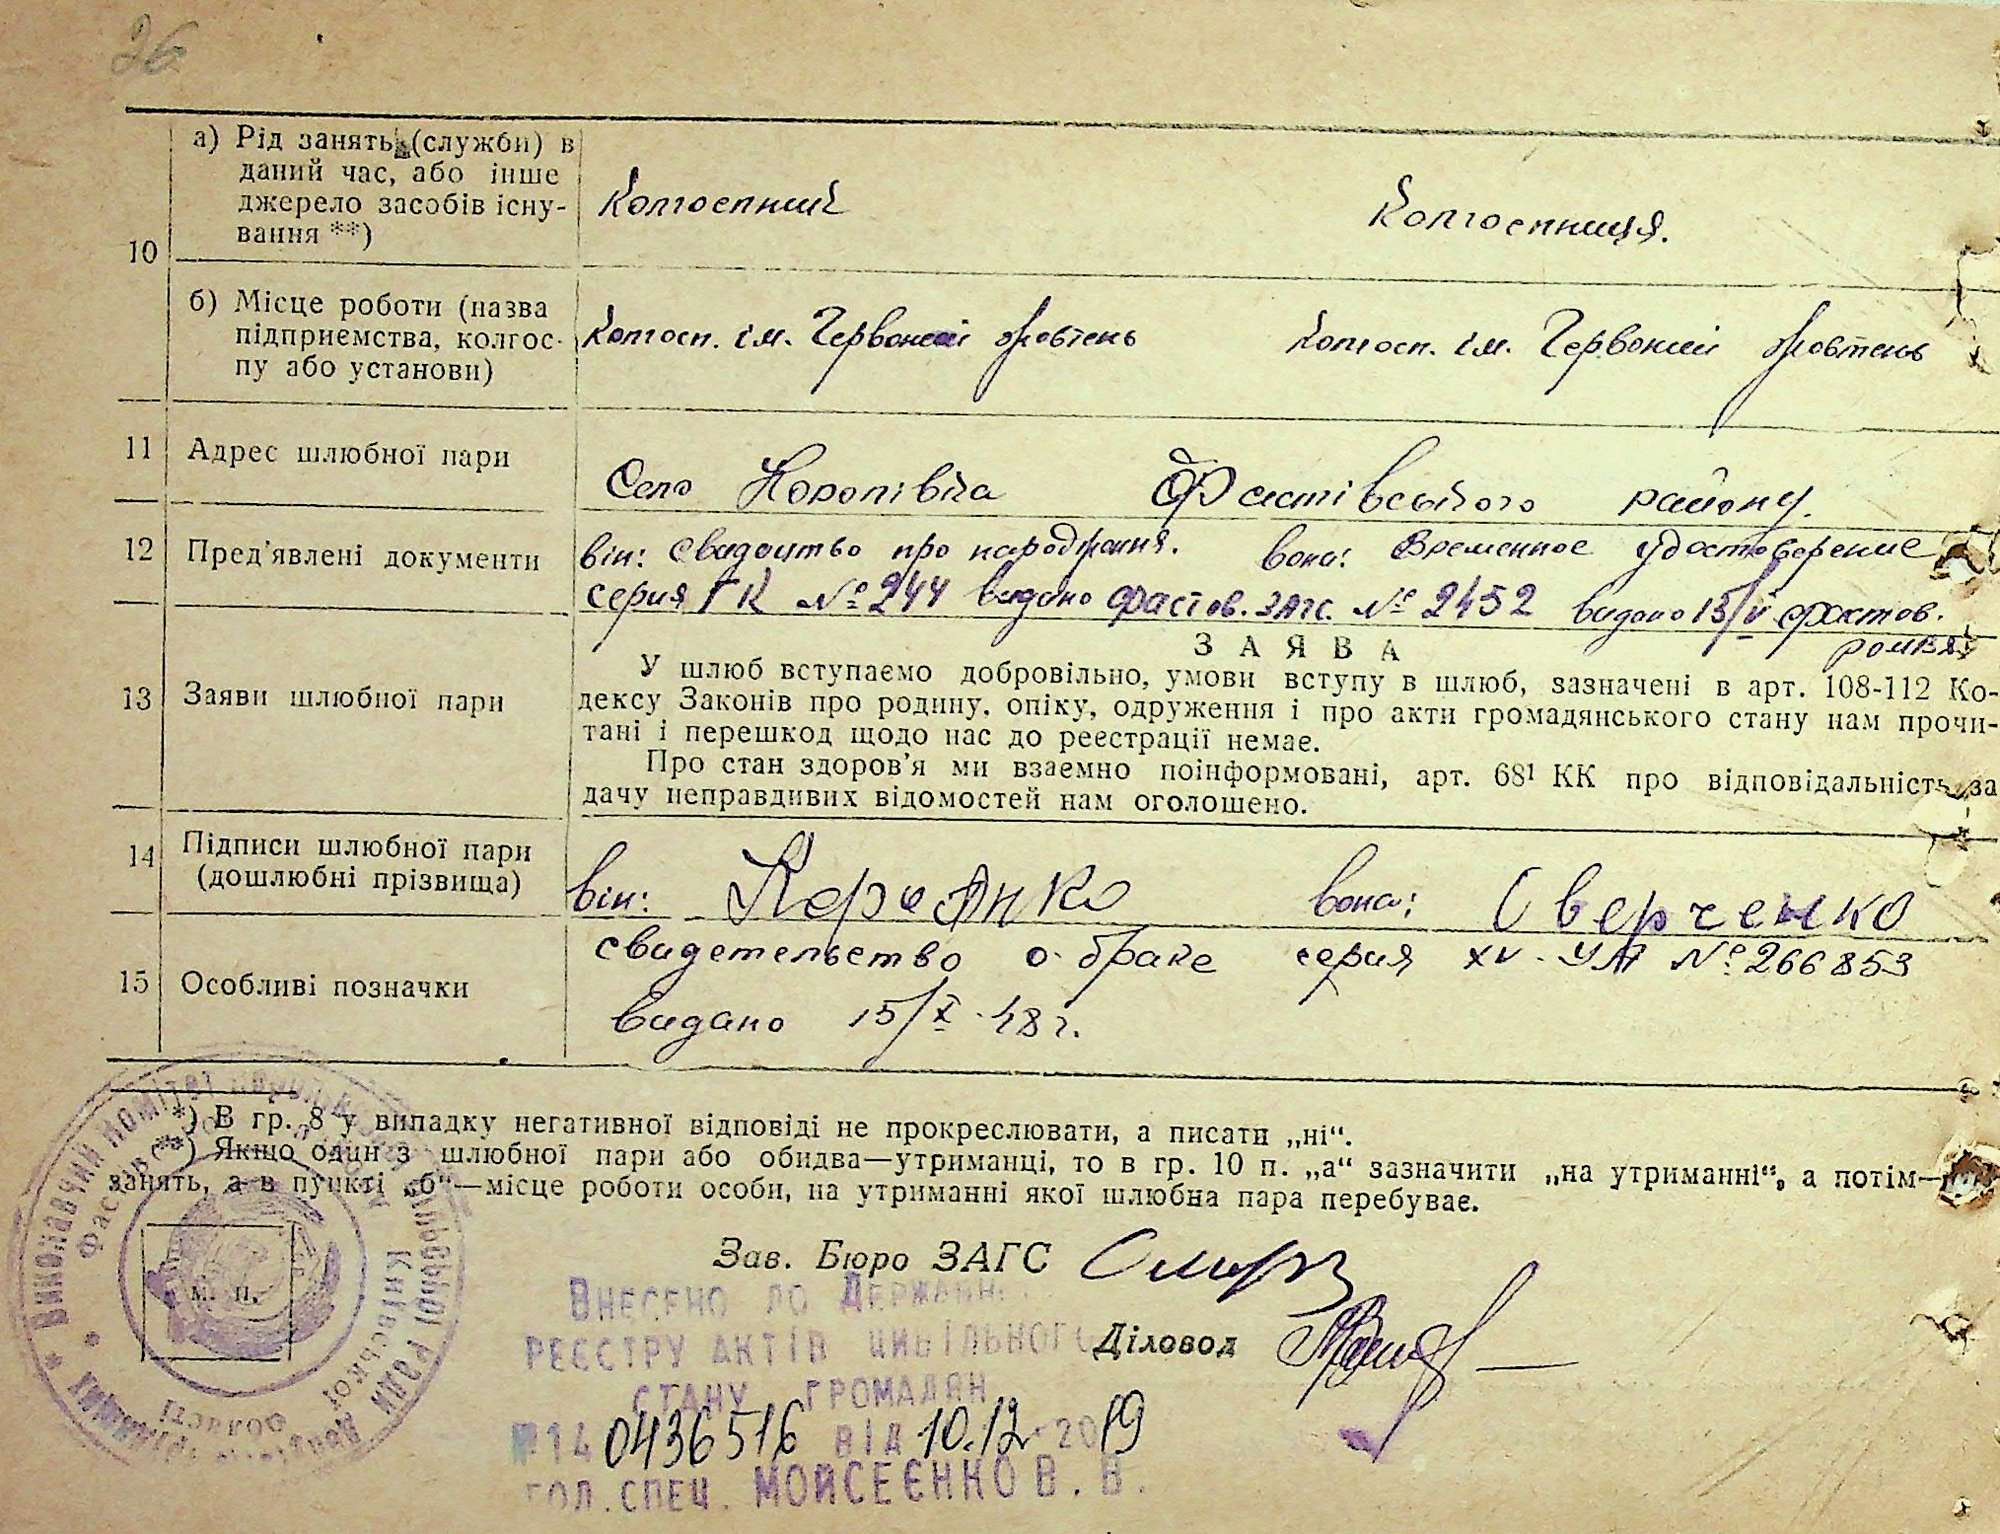 26
а) Рід занять (служби) в
даний час, або інше
джерело засобів існу-
вання **)
Колгоспник
Колгоспниця.
10
б) Місце роботи (назва
підприємства, колгос-
пу або установи)
Колгосп. ім. Червоний Жовтень
Колгосп. ім. Червоний Жовтень
11 Адрес шлюбної пари
Село Королівка Фастівського району.
12 Пред'явлені документи
він: свидоцтво про народження.
серия ГК № 244 видано Фастов. ЗАГС.
вона: Временное удостоверение
№ 2452 видано 15/V Фастов.
13 Заяви шлюбної пари
ЗАЯВА
У шлюб вступаємо добровільно, умови вступу в шлюб, зазначені в арт. 108-112 Ко-
дексу Законів про родину, опіку, одруження і про акти громадянського стану нам прочи-
тані і перешкод щодо нас до реєстрації немає.
Про стан здоров'я ми взаємно поінформовані, арт. 68¹ КК про відповідальність за
дачу неправдивих відомостей нам оголошено.
14 Підписи шлюбної пари
(дошлюбні прізвища)
він: вона: Сверченко
15 Особливі позначки
свидетельство о браке серия XV-УЛ № 266853
видано 15/X-48 г.
*) В гр. 8 у випадку негативної відповіді не прокреслювати, а писати „ні“.
**) Якщо один з шлюбної пари або обидва—утриманці, то в гр. 10 п. „а“ зазначити „на утриманні“, а потім—
занять, а в пункті „б“—місце роботи особи, на утриманні якої шлюбна пара перебуває.
М. П.
Виконавчий Комітет
Київської
області
Зав. Бюро ЗАГС
Діловод
ВНЕСЕНО ДО ДЕРЖАВН
РЕЄСТРУ АКТІВ ЦИВІЛЬНОГО
СТАНУ ГРОМАДЯН
№14 0436516 ВІД 10.12 2019
ГОЛ. СПЕЦ. МОЙСЕЄНКО В. В.